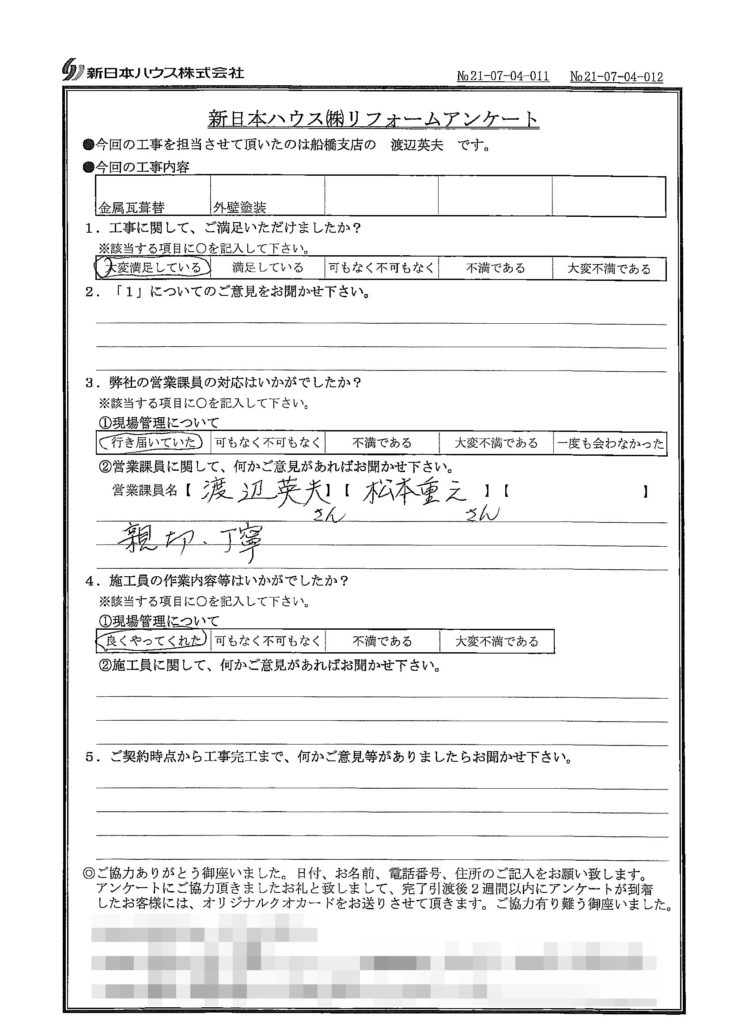 新日本ハウス株式会社
№21-07-04-011 №21-07-04-012
新日本ハウス㈱リフォームアンケート
●今回の工事を担当させて頂いたのは船橋支店の 渡辺英夫 です。
●今回の工事内容
金属瓦葺替 外壁塗装
1．工事に関して、ご満足いただけましたか？
※該当する項目に○を記入して下さい。
大変満足している 満足している 可もなく不可もなく 不満である 大変不満である
2．「1」についてのご意見をお聞かせ下さい。
3．弊社の営業課員の対応はいかがでしたか？
※該当する項目に○を記入して下さい。
①現場管理について
行き届いていた 可もなく不可もなく 不満である 大変不満である 一度も会わなかった
②営業課員に関して、何かご意見があればお聞かせ下さい。
営業課員名【 渡辺英夫 】【 松本重之 】【 】
さん さん
親切、丁寧
4．施工員の作業内容等はいかがでしたか？
※該当する項目に○を記入して下さい。
①現場管理について
良くやってくれた 可もなく不可もなく 不満である 大変不満である
②施工員に関して、何かご意見があればお聞かせ下さい。
5．ご契約時点から工事完工まで、何かご意見等がありましたらお聞かせ下さい。
◎ご協力ありがとう御座いました。日付、お名前、電話番号、住所のご記入をお願い致します。
アンケートにご協力頂きましたお礼と致しまして、完了引渡後２週間以内にアンケートが到着
したお客様には、オリジナルクオカードをお送りさせて頂きます。ご協力有り難う御座いました。